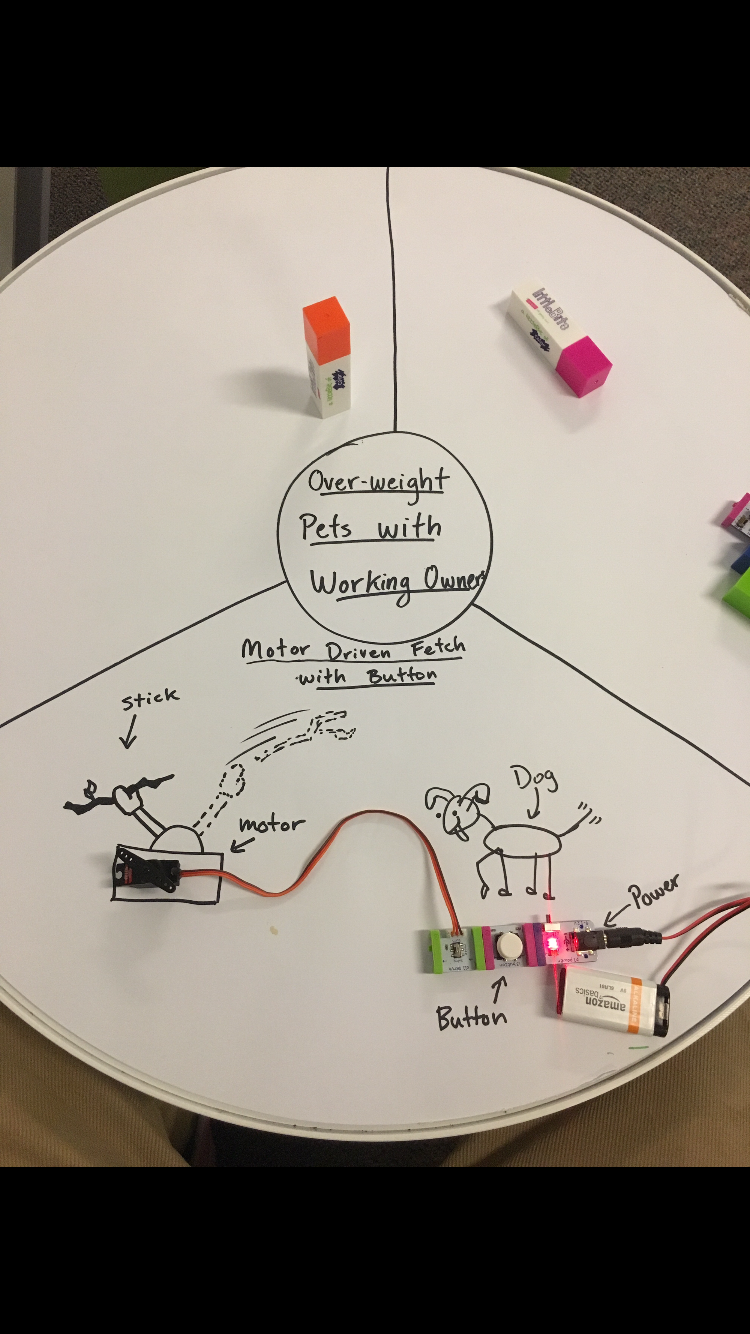 littleBits
Over-weight
Pets with
Working Owners
Motor Driven Fetch
with Button
stick
motor
Dog
Power
Button
amazon
basics